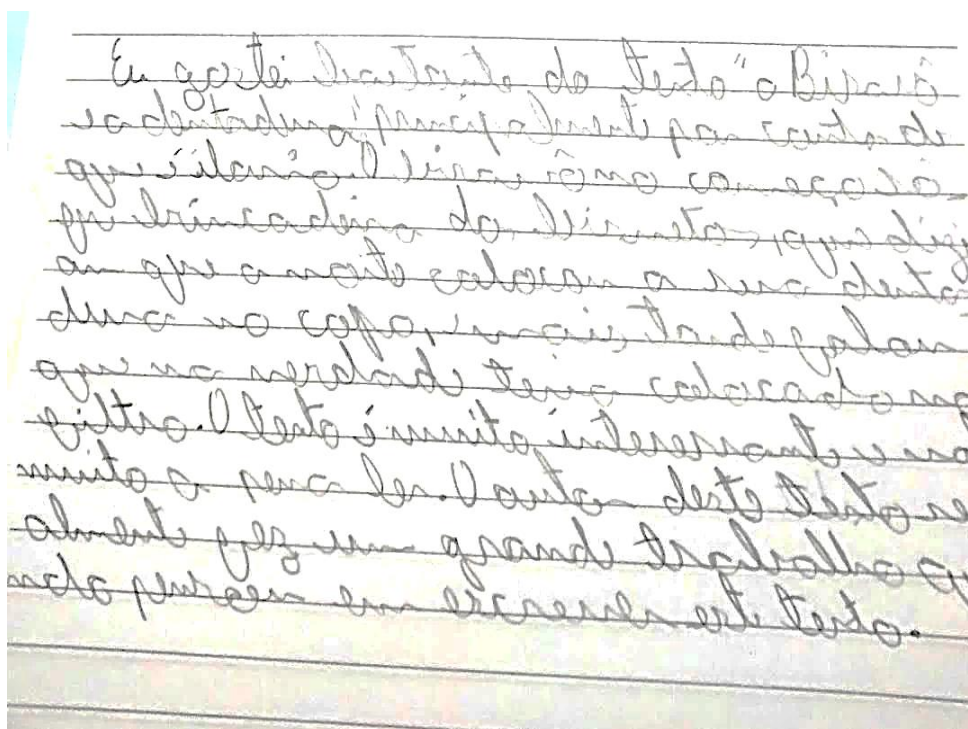 Eu gostei bastante do texto "o Bisavô
e a dentadura", principalmente por conta de
que é ilario. O bisavô no começo
que brincadeira do bisneto, que diz
am que a noite colocou a sua denta
dura no copo, mais tarde falou
que na verdade tinha colocado no
filtro. O texto é muito interessante e va
muito a pena ler. O autor deste texto re
almente fez um grande trabalho qu
ndo pensou em escrever este texto.